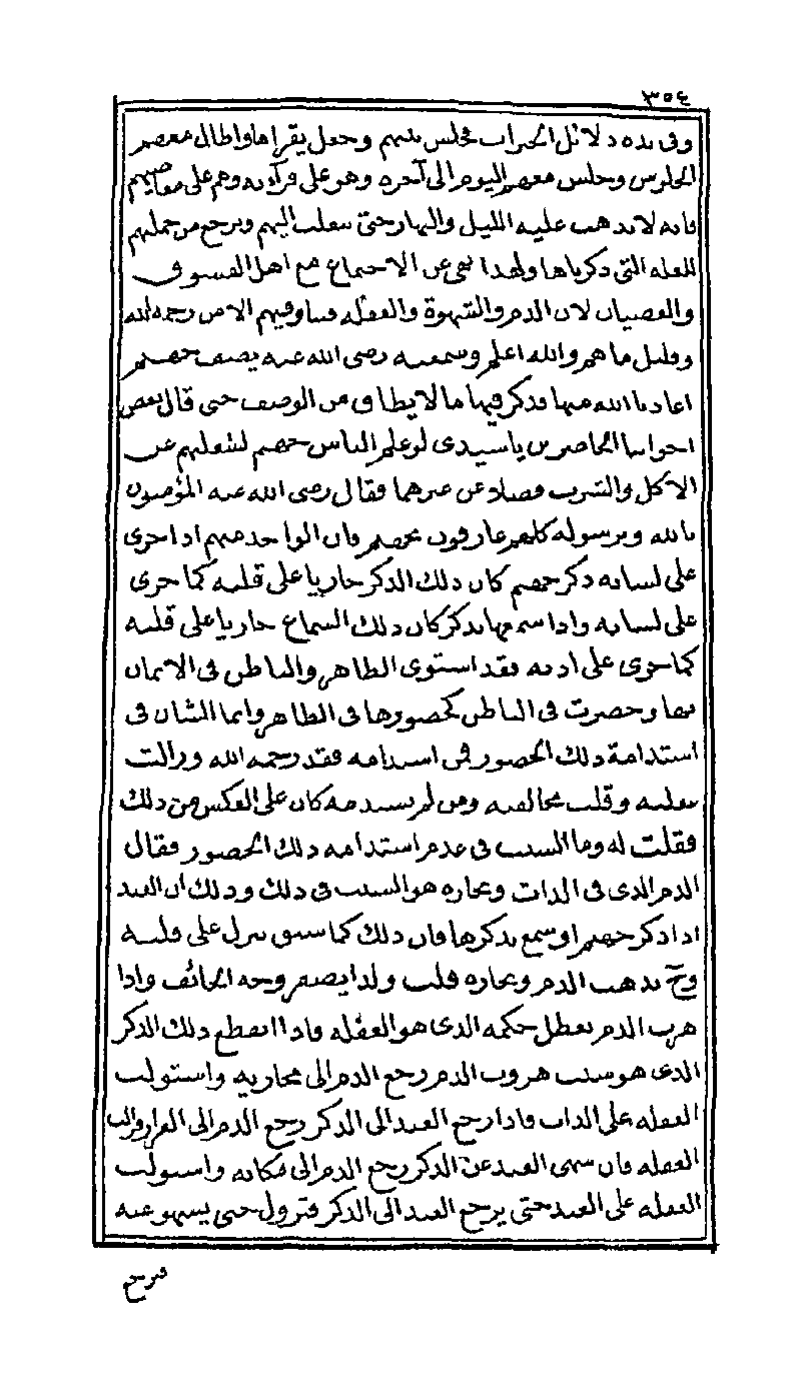 ٣٥٤
وفى يده دلائل الخيرات فجلس بينهم وجعل يقراها واطال معهم
الجلوس وجلس معهم اليوم الى آخره وهو على قرآءته وهم على معاصيهم
فانه لا يذهب عليه الليل والنهار حتى ينقلب اليهم ويرجع من جملتهم
للعلة التى ذكرناها ولهذا نهى عن الاجتماع مع اهل الفسوق
والعصيان لان الدم والشهوة والغفلة فينا وفيهم الا من رحمه الله
وقليل ما هم والله اعلم وسمعته رضى الله عنه يصف جهنم
اعاذنا الله منها فذكر فيها ما لا يطاق من الوصف حتى قال بعض
اخواننا الحاضرين يا سيدى لو علم الناس جهنم لشغلهم عن
الاكل والشرب فضلا عن غيرهما فقال رضى الله عنه المؤمنون
بالله وبرسوله كلهم عارفون بجهنم فان الواحد منهم اذا جرى
على لسانه ذكر جهنم كان ذلك الذكر جاريا على قلبه كما جرى
على لسانه واذا سمعها بذكر كان ذلك السماع جاريا على قلبه
كما جرى على اذنه فقد استوى الظاهر والباطن فى الايمان
بها وحضرت فى الباطن كحضورها فى الظاهر وانما الشان فى
استدامة ذلك الحضور فمن استدامه فقد رحمه الله وزالت
غفلته وقلت مخالفته ومن لم يستدمه كان على العكس من ذلك
فقلت له وما السبب فى عدم استدامة ذلك الحضور فقال
الدم الذى فى الذات وبخاره هو السبب فى ذلك وذلك ان العبد
اذا ذكر جهنم او سمع بذكرها فان ذلك كما سبق ينزل على قلبه
وح يذهب الدم وبخاره قلت ولذا يصفر وجه الخائف واذا
هرب الدم تعطل حكمه الذى هو الغفلة فاذا انقطع ذلك الذكر
الذى هو سبب هروب الدم رجع الدم الى مجاريه واستولت
الغفلة على الذات فاذا رجع العبد الى الذكر رجع الدم الى الفرار وزالت
الغفلة فان سهى العبد عن الذكر رجع الدم الى مكانه واستولت
الغفلة على العبد حتى يرجع العبد الى الذكر فتزول حتى يسهو عنه
فترجع